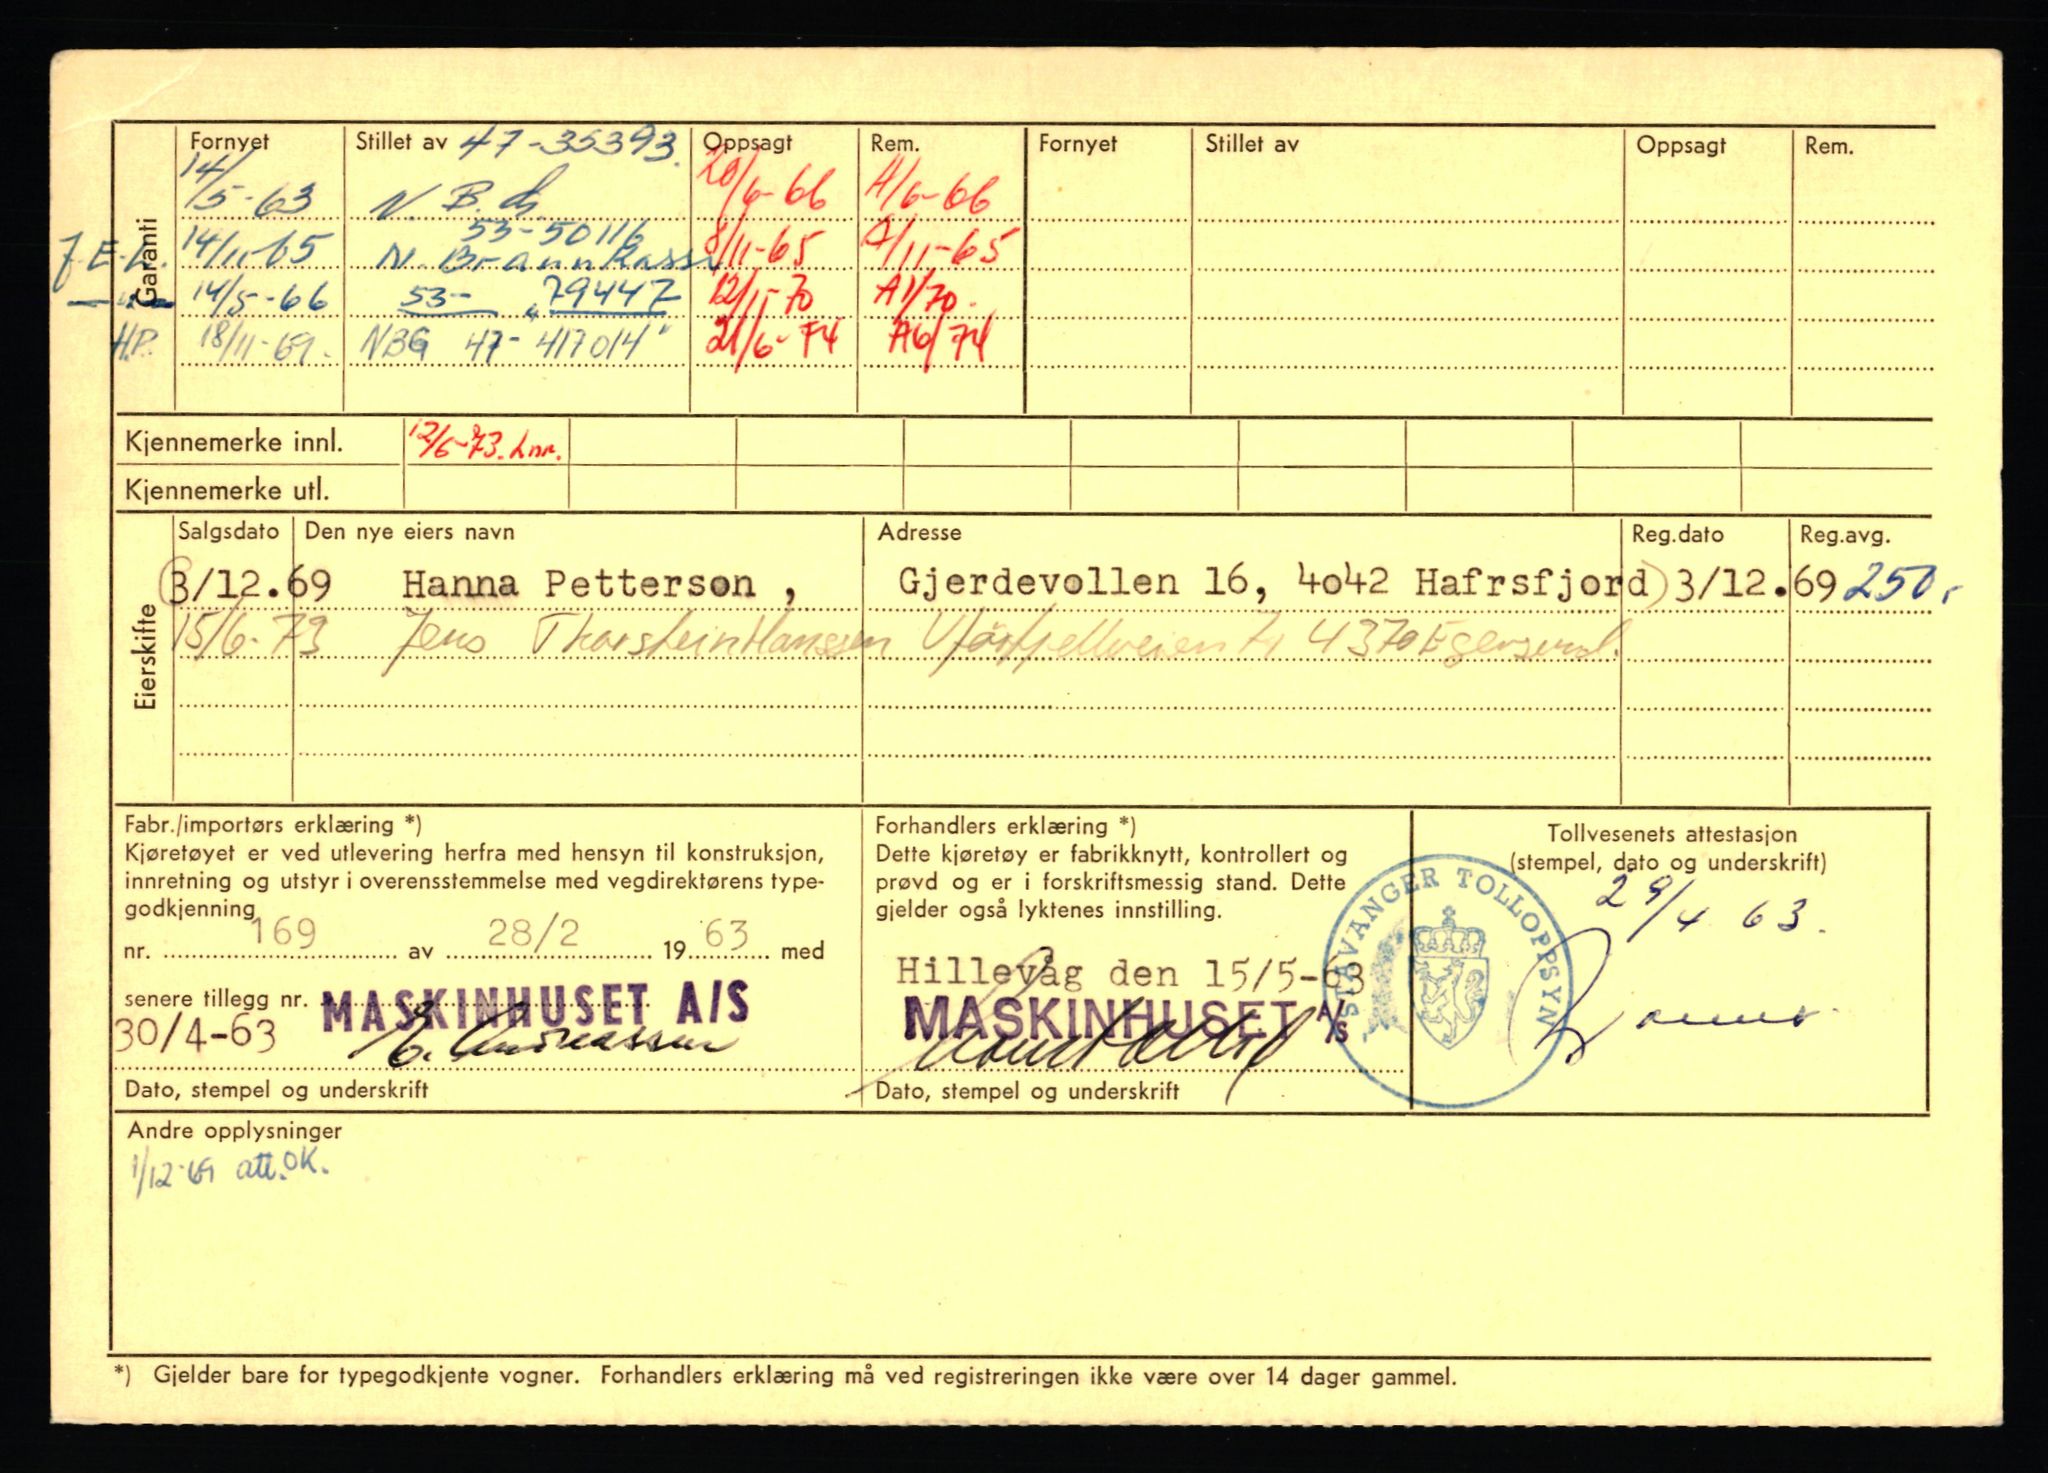 Garanti
Fornyet Stillet av 47-35393. Oppsagt Rem. Fornyet Stillet av Oppsagt Rem.
14/5-63 N. B. 20/6-66 A/6-66
J.E.L. 14/11-65 53-50116 N. Brannkasse 8/11-65 A/11-65
14/5-66 53- 79447 12/1-70 A1/70.
H.P. 18/11-69. NBG 47-417014" 21/6-74 A6/74
Kjennemerke innl. 12/6-73. Lnr.
Kjennemerke utl.
Eierskifte
Salgsdato Den nye eiers navn Adresse Reg.dato Reg.avg.
(3/12.69 Hanna Petterson , Gjerdevollen 16, 4042 Hafrsfjord) 3/12.69 250,-
15/6-73 Jens Thorstein Hanssen 4370 Egersund.
Fabr./importørs erklæring *)
Kjøretøyet er ved utlevering herfra med hensyn til konstruksjon,
innretning og utstyr i overensstemmelse med vegdirektørens type-
godkjenning
nr. 169 av 28/2 1963 med
senere tillegg nr. MASKINHUSET A/S
30/4-63 E. Andreassen
Dato, stempel og underskrift
Forhandlers erklæring *)
Dette kjøretøy er fabrikknytt, kontrollert og
prøvd og er i forskriftsmessig stand. Dette
gjelder også lyktenes innstilling.
Hillevåg den 15/5-63
MASKINHUSET A/S
Dato, stempel og underskrift
Tollvesenets attestasjon
(stempel, dato og underskrift)
29/4 63.
STAVANGER TOLLOPPSYN
Andre opplysninger
1/12-69 att. OK.
*) Gjelder bare for typegodkjente vogner. Forhandlers erklæring må ved registreringen ikke være over 14 dager gammel.